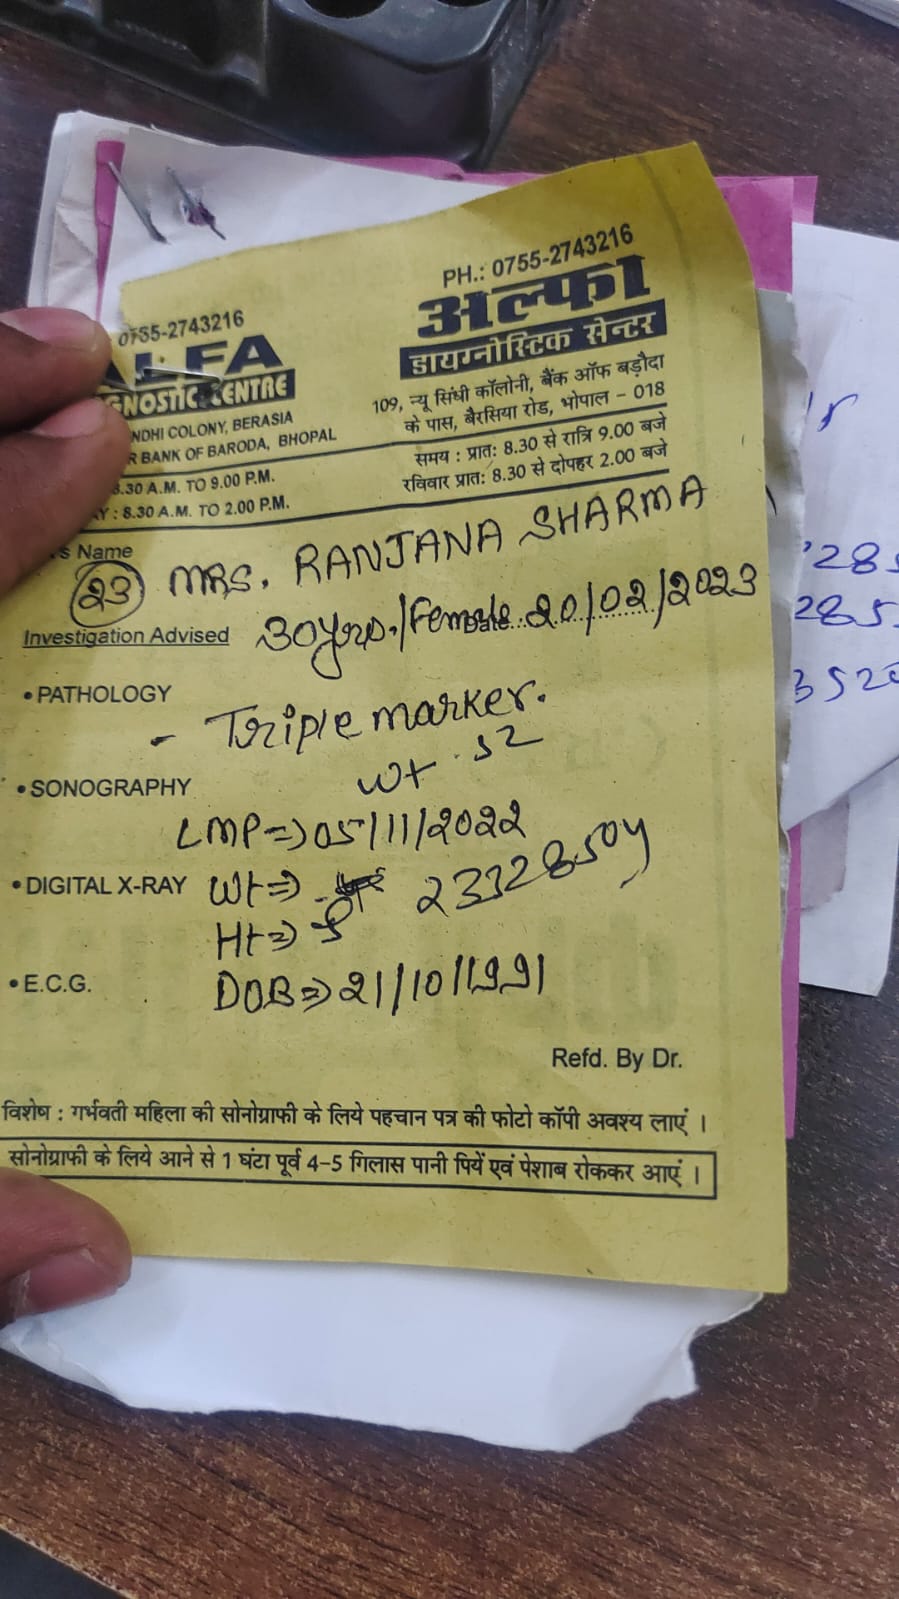 PH.: 0755-2743216
अल्फा
डायग्नोस्टिक सेन्टर
109, न्यू सिंधी कॉलोनी, बैंक ऑफ बड़ौदा
के पास, बैरसिया रोड, भोपाल - 018
समय : प्रातः 8.30 से रात्रि 9.00 बजे
रविवार प्रातः 8.30 से दोपहर 2.00 बजे
0755-2743216
ALFA
GNOSTIC CENTRE
NDHI COLONY, BERASIA
R BANK OF BARODA, BHOPAL
8.30 A.M. TO 9.00 P.M.
AY : 8.30 A.M. TO 2.00 P.M.
's Name
23 MRS. RANJANA SHARMA
Investigation Advised 30yrs./Female Date 20/02/2023
• PATHOLOGY
- Triple marker.
• SONOGRAPHY
Wt . 52
LMP=>05/11/2022
• DIGITAL X-RAY Wt=>
Ht=> 5
• E.C.G.
DOB=>21/10/1991
Refd. By Dr.
विशेष : गर्भवती महिला की सोनोग्राफी के लिये पहचान पत्र की फोटो कॉपी अवश्य लाएं ।
सोनोग्राफी के लिये आने से 1 घंटा पूर्व 4-5 गिलास पानी पियें एवं पेशाब रोककर आएं ।
285